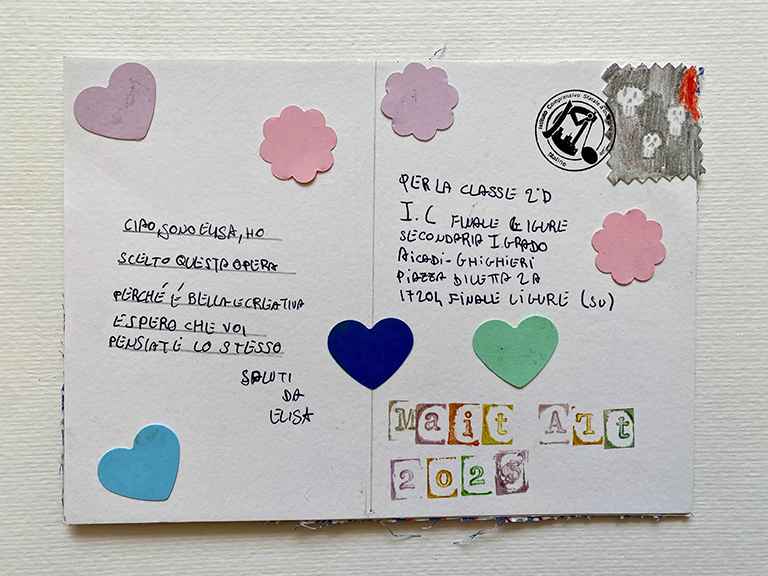 CIAO, SONO ELISA, HO
SCELTO QUESTA OPERA
PERCHÉ É BELLA E CREATIVA
ESPERO CHE VOI
PENSIATE LO STESSO
SALUTI
DA
ELISA
PER LA CLASSE 2°D
I.C FINALE LIGURE
SECONDARIA I GRADO
AICADI-GHIGHIERI
PIAZZA DILETTA 2A
17204 FINALE LIGURE (SV)
Mait Art
202